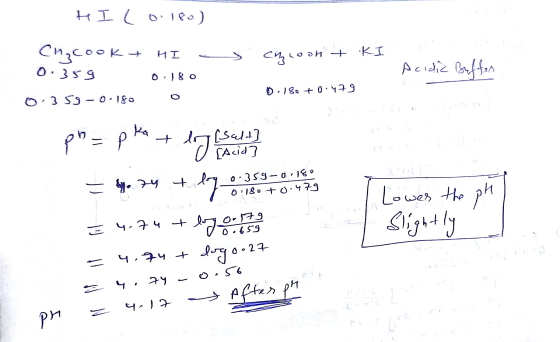 HI (0.180)
CH3COOK + HI → CH3COOH + KI
0.359 0.180
Acidic Buffer
0.359-0.180 0 0.180+0.479
pH = pKa + log [Salt]/[Acid]
= 4.74 + log 0.359-0.180/0.180+0.479
= 4.74 + log 0.179/0.659
= 4.74 + log 0.27
= 4.74 - 0.56
pH = 4.17 → After pH
Lower the pH
Slightly